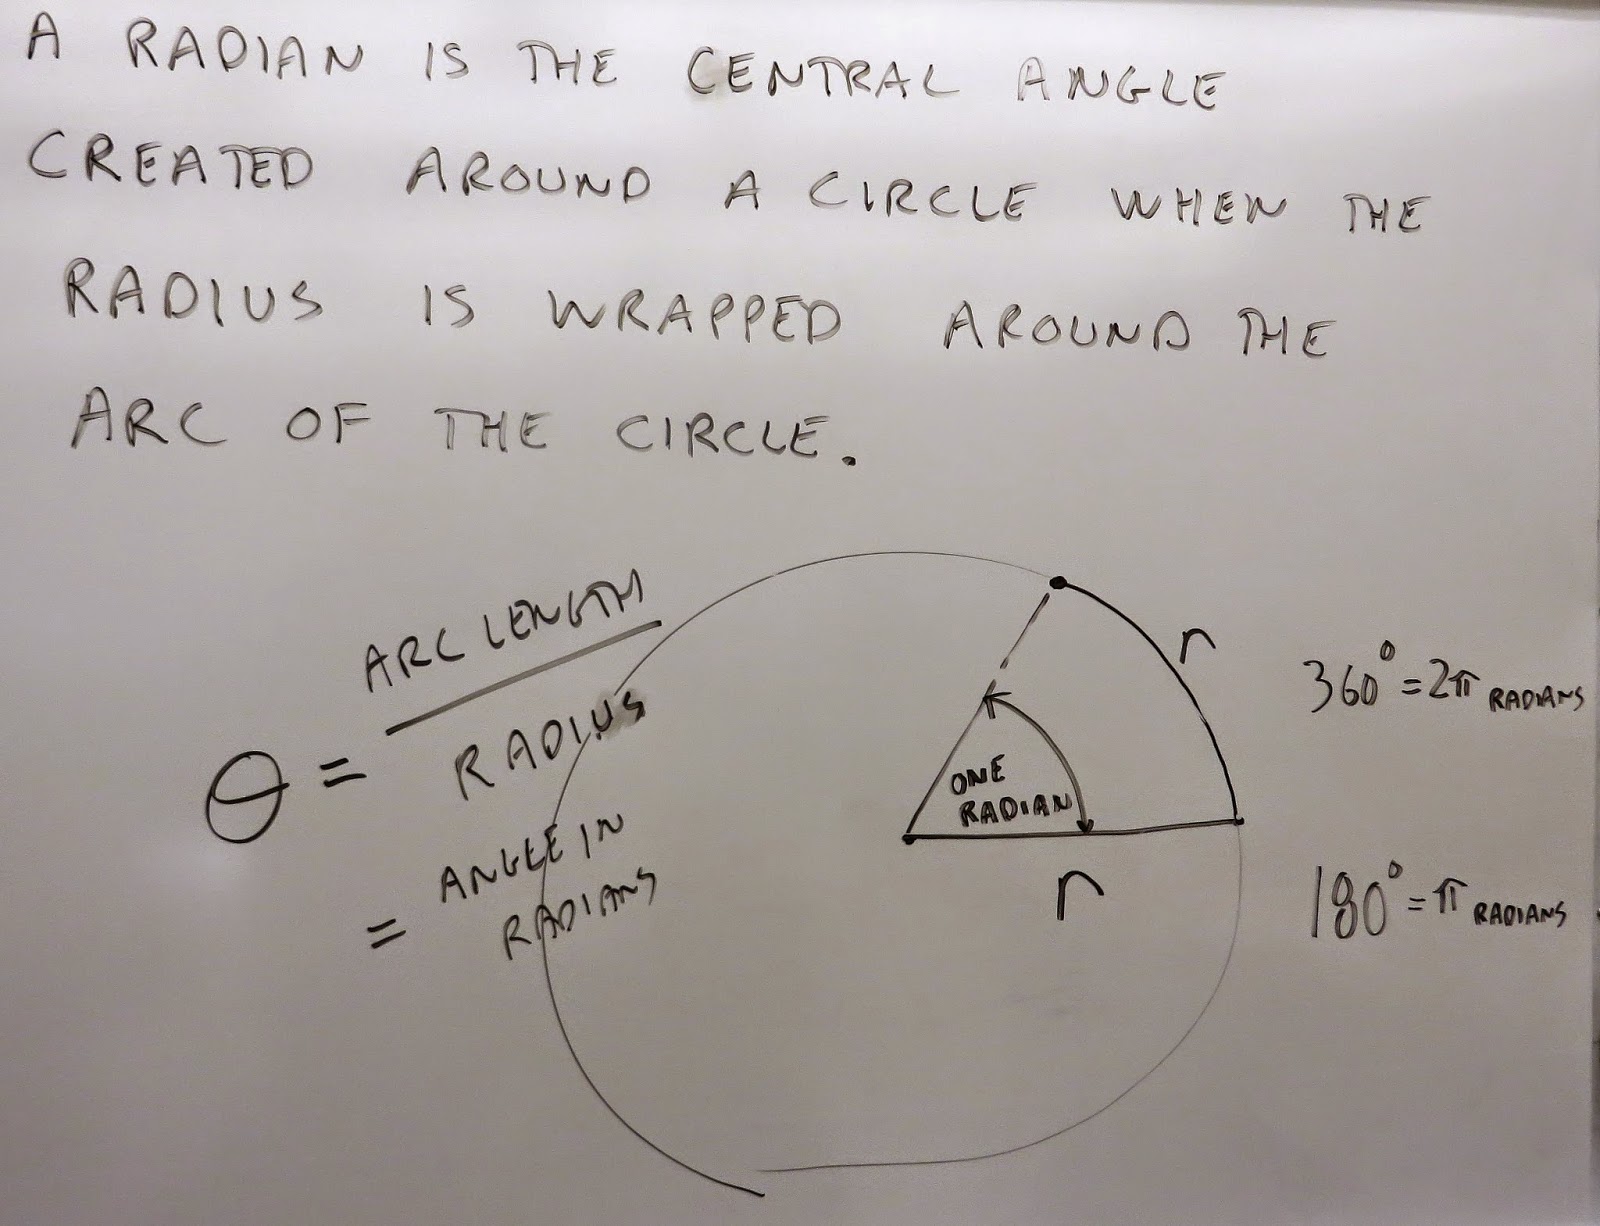 A RADIAN IS THE CENTRAL ANGLE
CREATED AROUND A CIRCLE WHEN THE
RADIUS IS WRAPPED AROUND THE
ARC OF THE CIRCLE.
θ = ARC LENGTH
RADIUS
= ANGLE IN
RADIANS
r
ONE
RADIAN
r
360° = 2π RADIANS
180° = π RADIANS